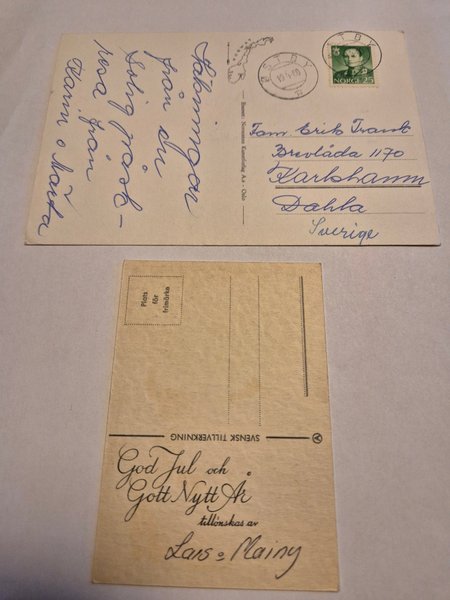 Hälsningar
från en
solig påsk-
resa från
Hanna o Märta
Eneret: Normanns Kunstforlag A.s - Oslo
ØSTBY
ØSTBY
NORGE 25
Fam. Erik Frank
Brevlåda 1170
Karlshamn
Dahla
Sverige
Plats
för
frimärke
SVENSK TILLVERKNING
God Jul och
Gott Nytt År
tillönskas av
Lars o Mainy